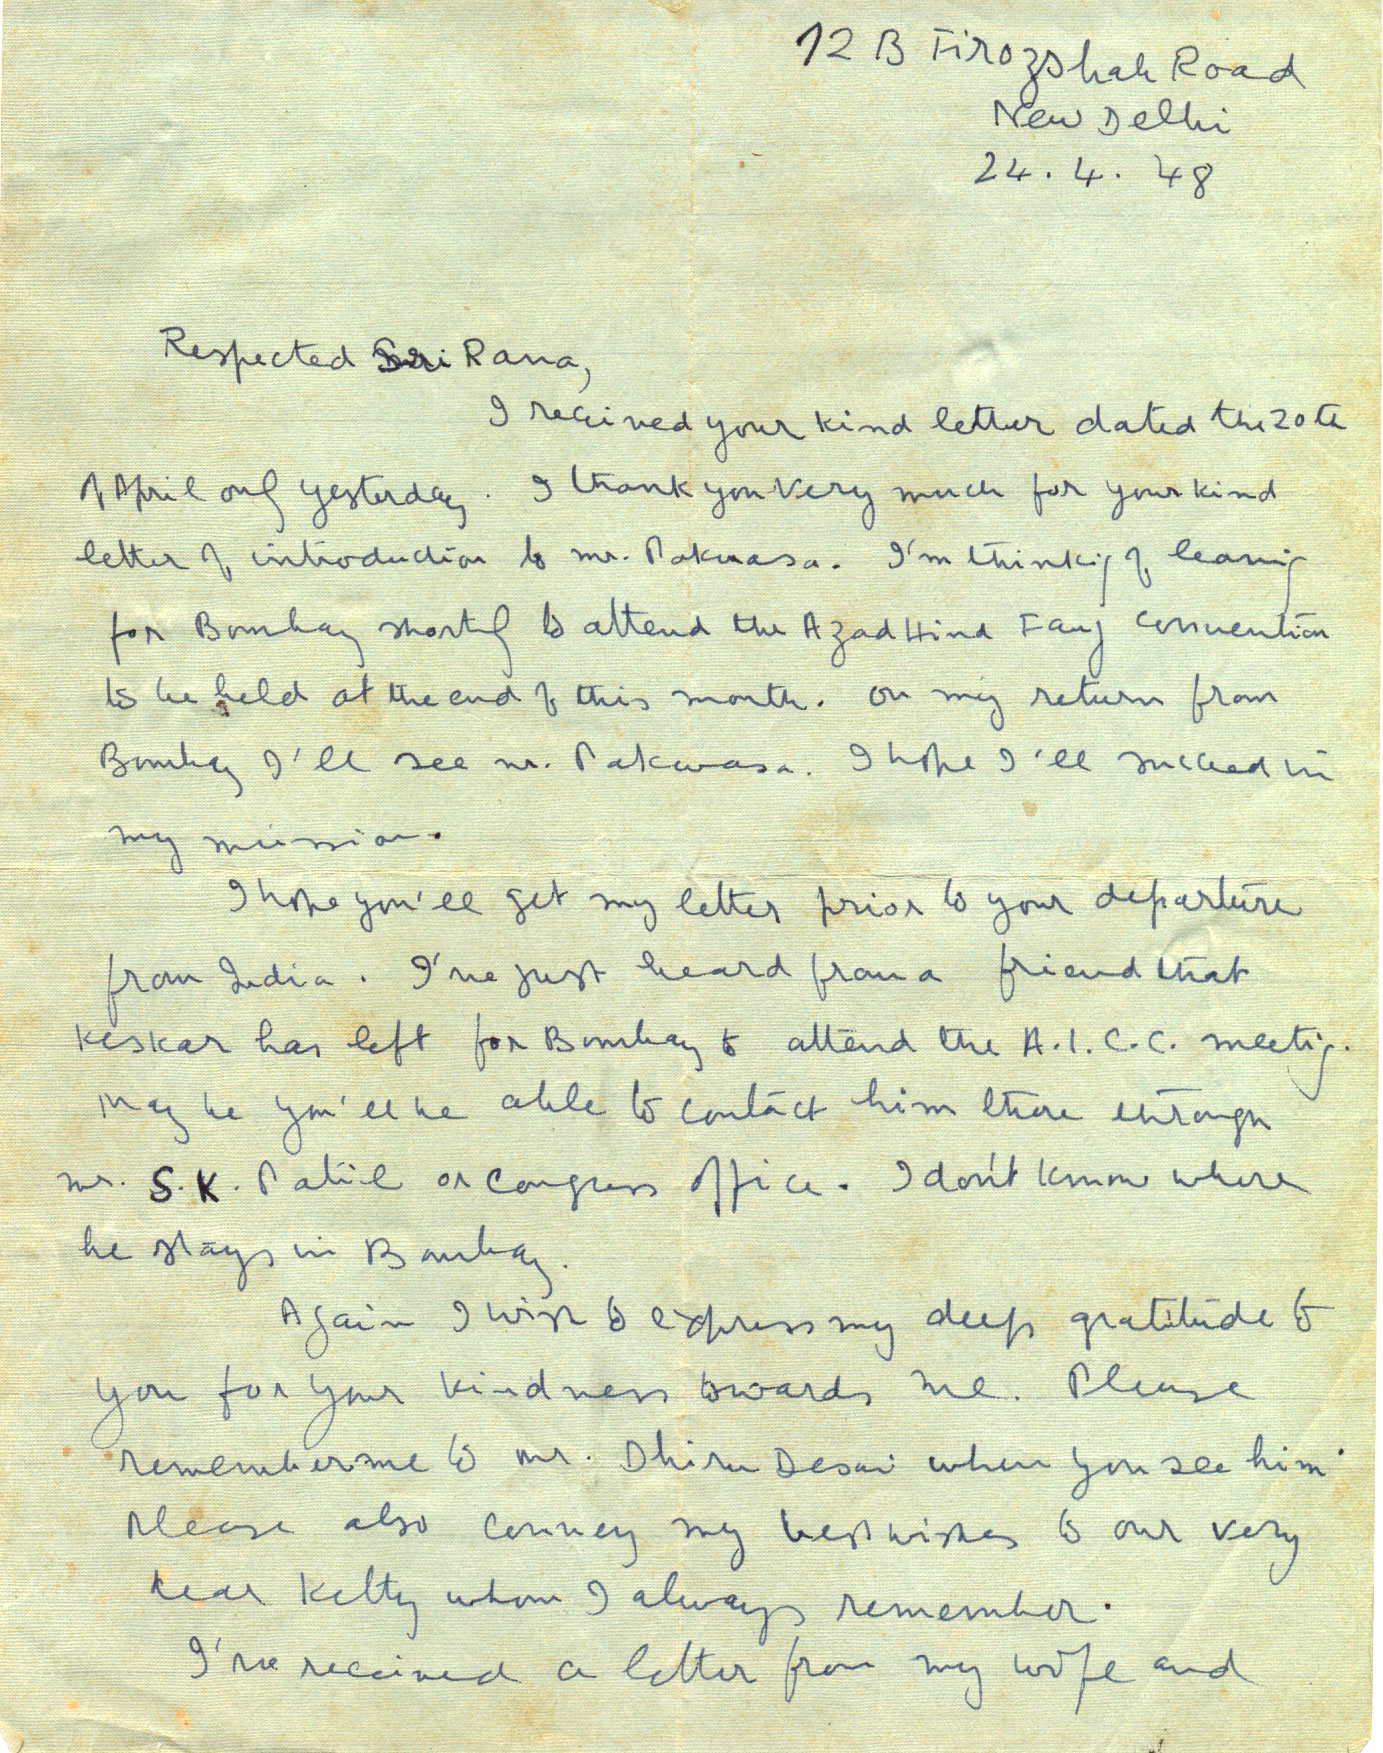 12 B Firozshah Road
New Delhi
24. 4. 48
Respected Sri Rana,
I received your kind letter dated the 20th
of April only yesterday. I thank you very much for your kind
letter of introduction to mr. Pakwasa. I'm thinking of leaving
for Bombay shortly to attend the Azad Hind Fauj Convention
to be held at the end of this month. On my return from
Bombay I'll see mr. Pakwasa. I hope I'll succeed in
my mission.
I hope you'll get my letter prior to your departure
from India. I've just heard from a friend that
Keskar has left for Bombay to attend the A.I.C.C. meeting.
May be you'll be able to contact him there through
mr. S.K. Patil or Congress Office. I don't know where
he stays in Bombay.
Again I wish to express my deep gratitude to
you for your kindness towards me. Please
remember me to mr. Dhiru Desai when you see him.
Please also convey my best wishes to our very
dear Ketty whom I always remember.
I've received a letter from my wife and